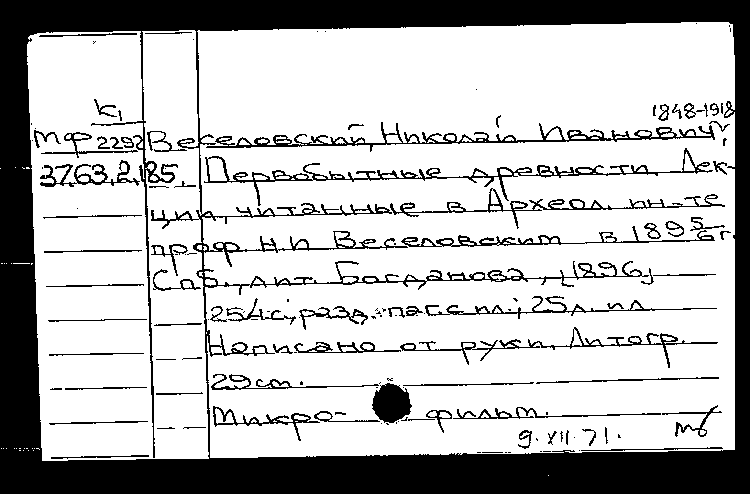 К1
1848-1918
МФ 2292 Веселовский, Николай Иванович.
37.63.2.185. Первобытные древности. Лек-
ции, читанные в Археол. ин-те
проф. Н.И Веселовским в 1895/6 г.
Спб., лит. Богданова, [1896]
254 с; разд. паг. с ил.; 25 л. ил.
Написано от руки. Литогр.
29 см.
Микро- фильм.
9.XII.71.